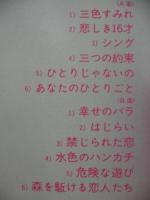 (A面)
1) 三色すみれ
2) 悲しき16才
3) シング
4) 三つの約束
5) ひとりじゃないの
6) あなたのひとりごと
(B面)
1) 幸せのバラ
2) はじらい
3) 禁じられた恋
4) 水色のハンカチ
5) 危険な遊び
6) 森を駈ける恋人たち